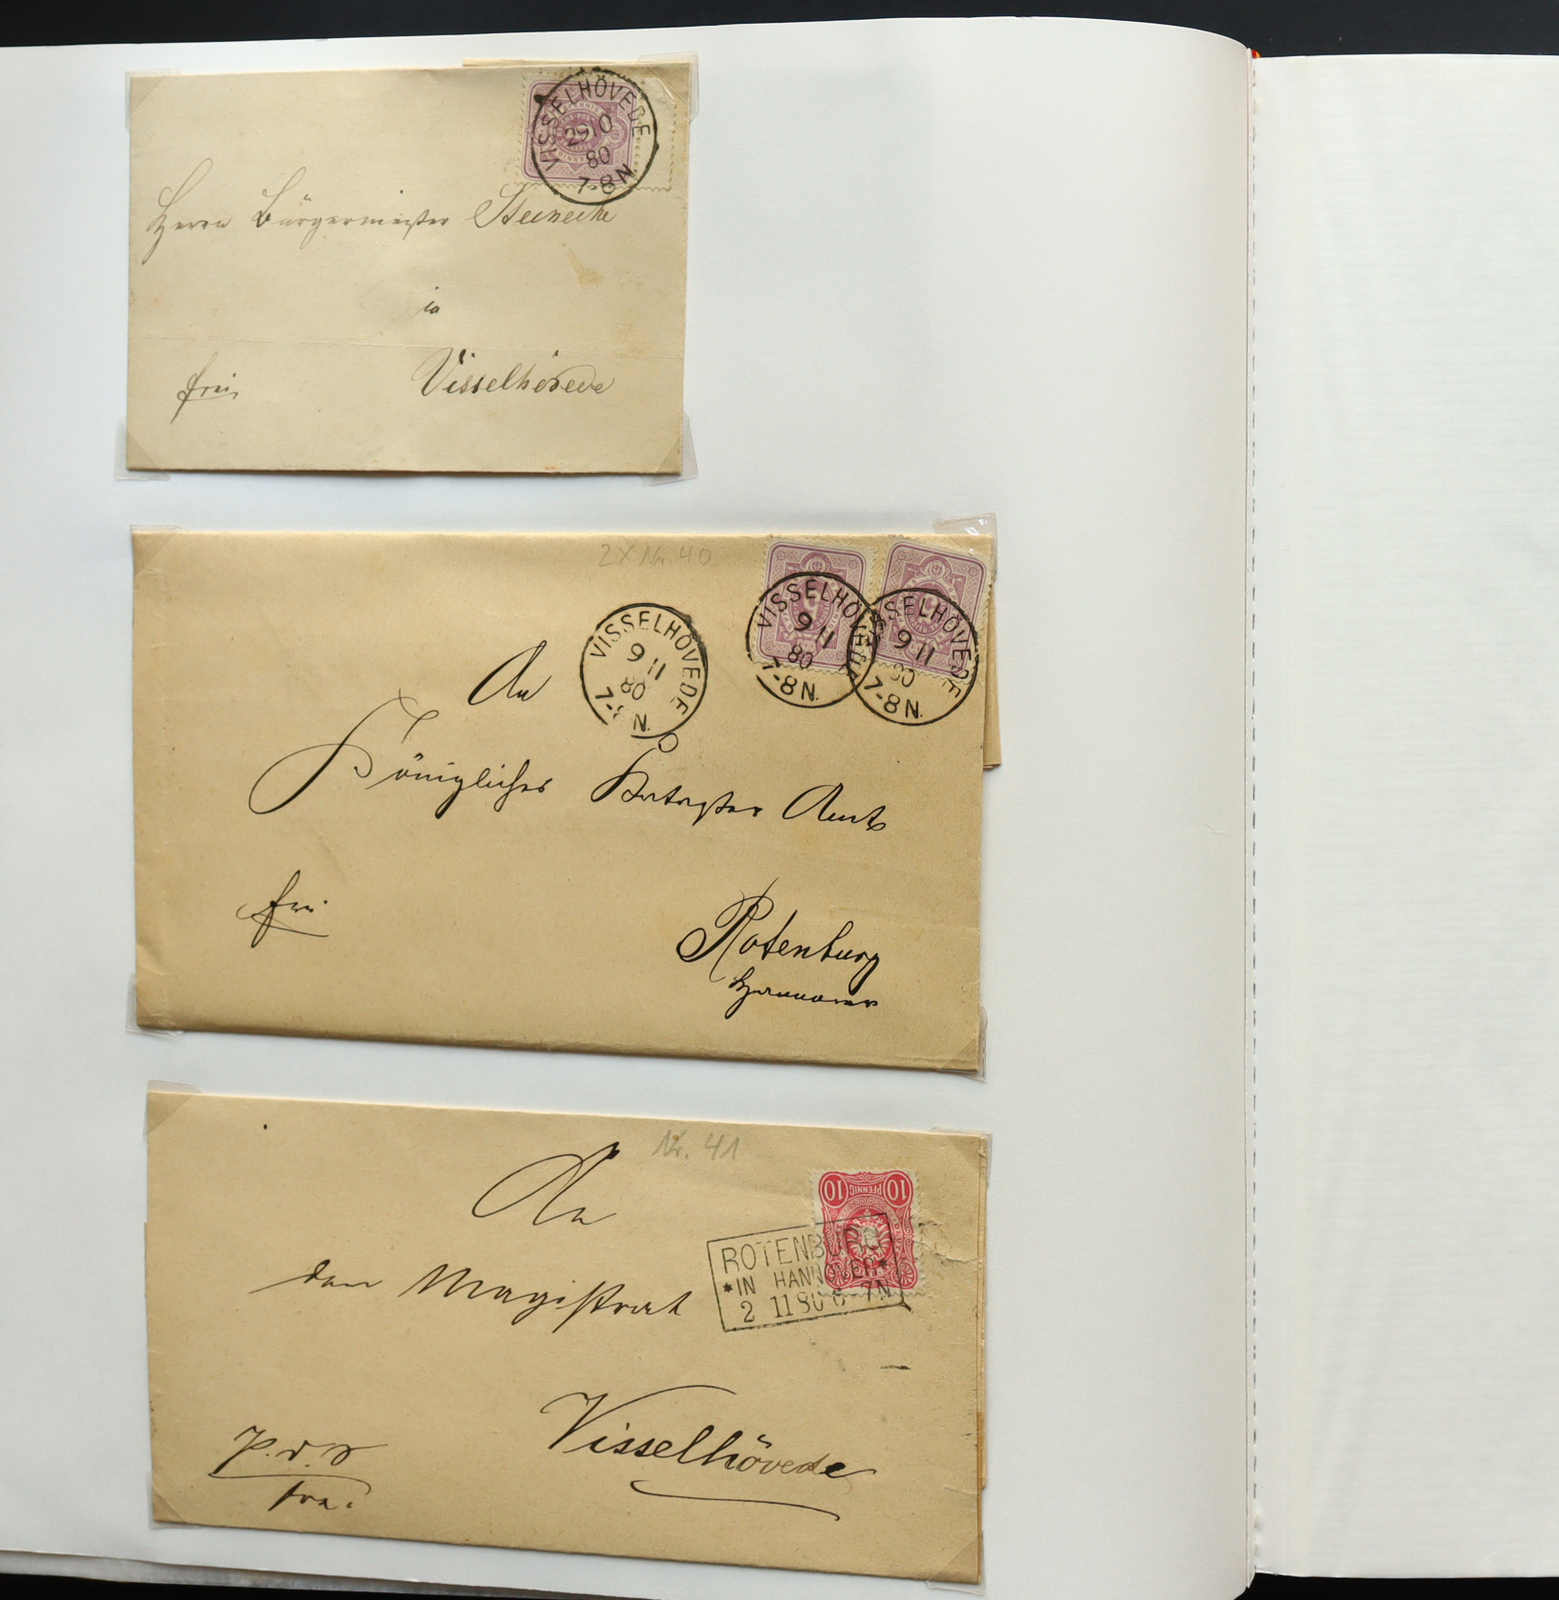 VISSELHÖVEDE
29 10
80
7-8N
Herrn Bürgermeister Steinecke
in
Visselhövede
frei
2 x Nr. 40
VISSELHÖVEDE
9 11
80
7-8N.
VISSELHÖVEDE
9 11
80
7-8N.
VISSELHÖVEDE
9 11
80
7-8N.
An
Königliches Kataster Amt
frei
Rotenburg
Hannover
Nr. 41
10 PFENNIG 10
ROTENBURG
*IN HANNOVER*
2 11 80 6-7N
An
den Magistrat
Visselhövede
frei